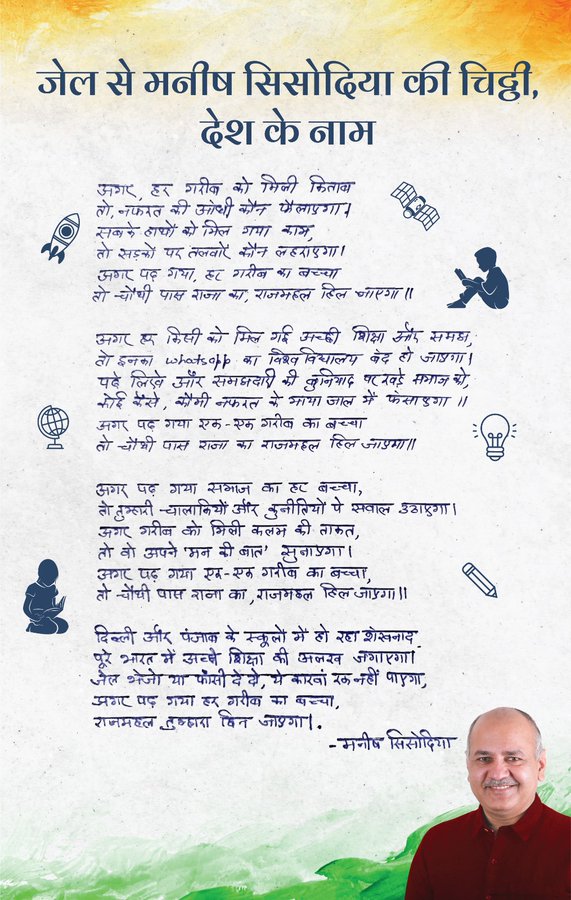 जेल से मनीष सिसोदिया की चिट्ठी,
देश के नाम
अगर, हर गरीब को मिली किताब
तो, नफरत की आंधी कौन फैलाएगा।
सबके हाथों को मिल गया काम,
तो सड़कों पर तलवारें कौन लहराएगा।
अगर पढ़ गया, हर गरीब का बच्चा
तो चौथी पास राजा का, राजमहल हिल जाएगा॥
अगर हर किसी को मिल गई अच्छी शिक्षा और समझ,
तो इनका whatsapp का विश्वविद्यालय बंद हो जाएगा।
पढ़े लिखे और समझदारी की बुनियाद पर खड़े समाज को,
कोई कैसे, कौमी नफरत के माया जाल में फंसाएगा॥
अगर पढ़ गया एक-एक गरीब का बच्चा
तो चौथी पास राजा का राजमहल हिल जाएगा॥
अगर पढ़ गया समाज का हर बच्चा,
तो तुम्हारी चालाकियों और कुनीतियों पे सवाल उठाएगा।
अगर गरीब को मिली कलम की ताकत,
तो वो अपने 'मन की बात' सुनाएगा।
अगर पढ़ गया एक-एक गरीब का बच्चा,
तो चौथी पास राजा का, राजमहल हिल जाएगा॥
दिल्ली और पंजाब के स्कूलों में हो रहा शंखनाद
पूरे भारत में अच्छी शिक्षा की अलख जगाएगा।
जेल भेजो या फाँसी दे दो, ये कारवां रुक नहीं पाएगा,
अगर पढ़ गया हर गरीब का बच्चा,
राजमहल तुम्हारा हिल जाएगा।.
-मनीष सिसोदिया